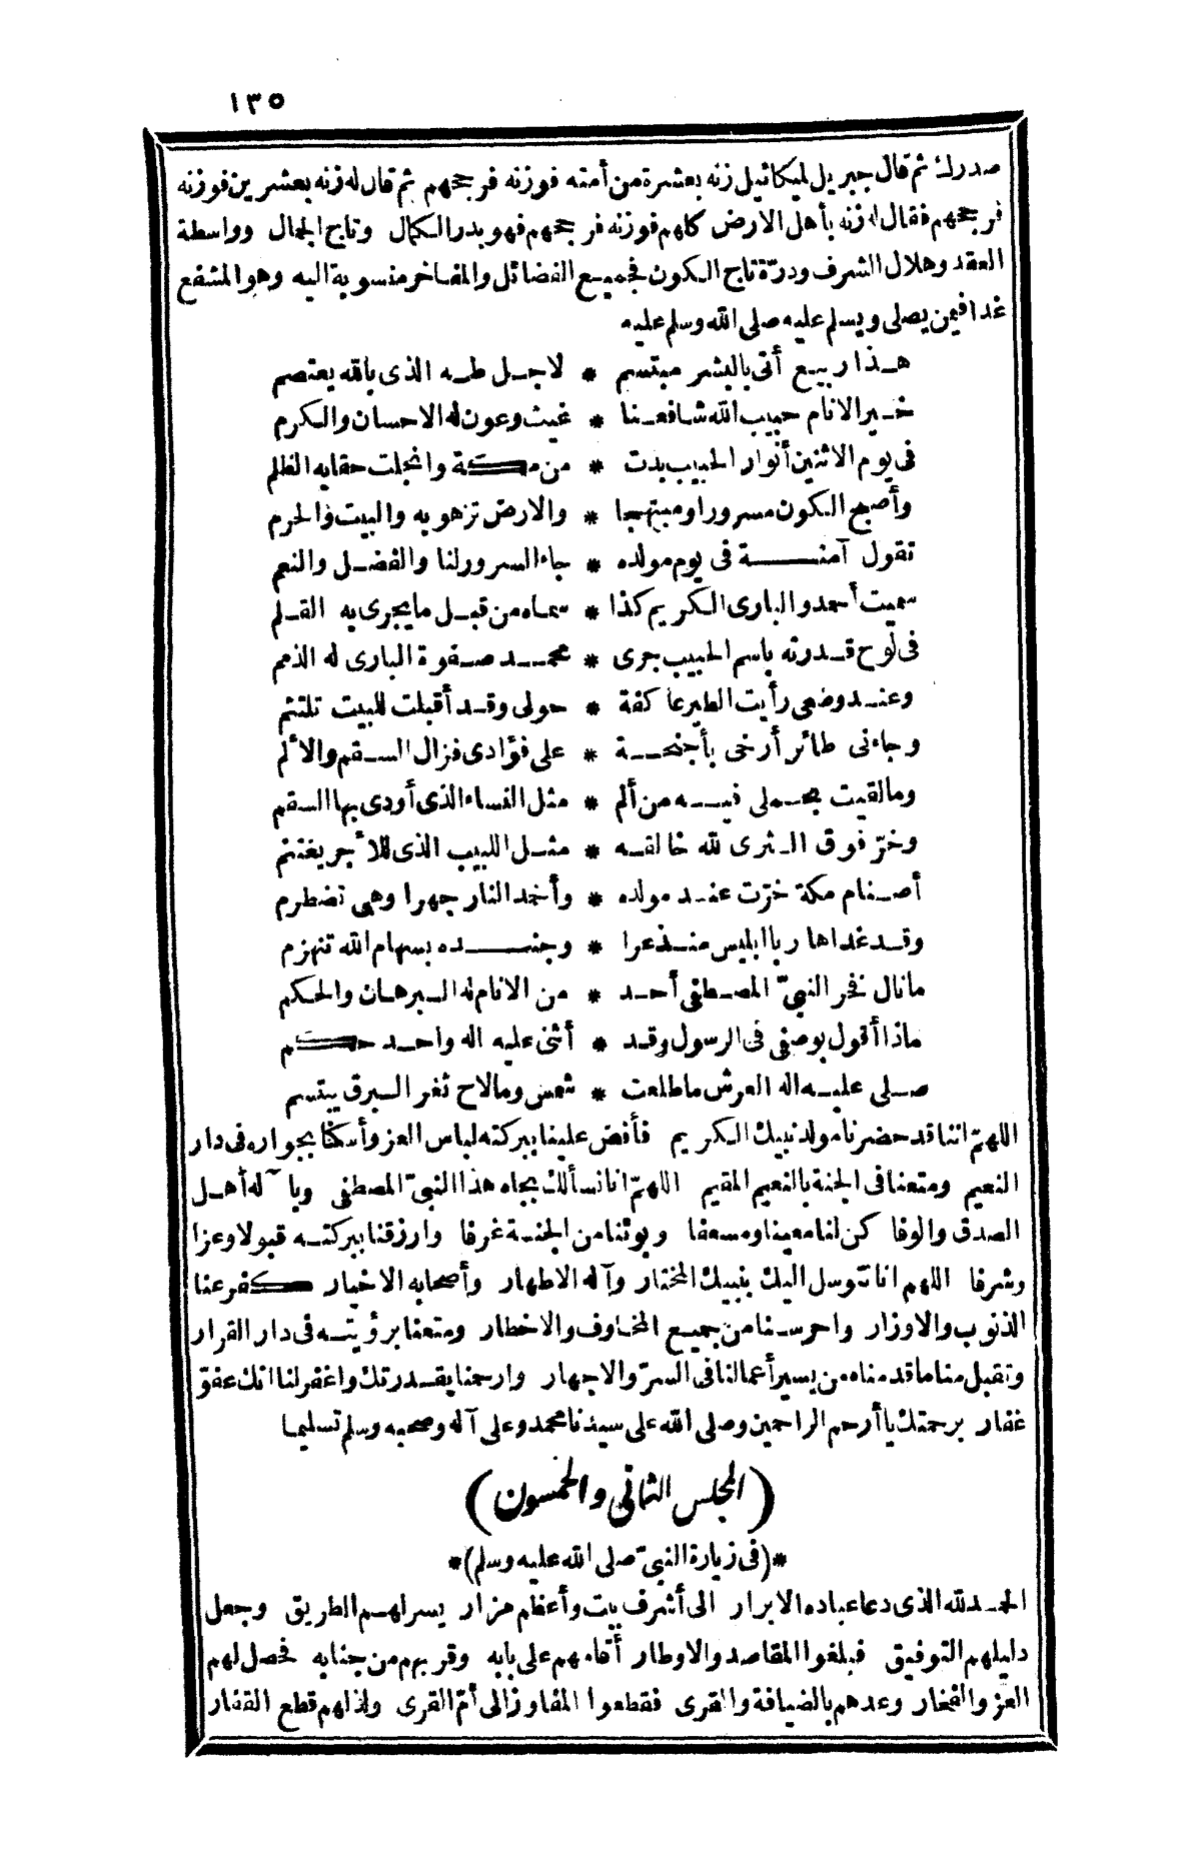 ١٣٥
صدرك ثم قال جبريل لميكائيل زنه بعشرة من أمته فوزنه فرجحهم ثم قال له زنه بعشرين فوزنه
فرجحهم فقال له زنه بأهل الارض كلهم فوزنه فرجحهم فهو بدر الكمال وتاج الجمال وواسطة
العقد وهلال الشرف ودرّة تاج الكون فجميع الفضائل والمفاخر منسوبة اليه وهو المشفع
غدا فيمن يصلى ويسلم عليه صلى الله وسلم عليه
هذا ربيع أتى بالبشر مبتسم * لاجل طه الذى بالله يعتصم
خير الانام حبيب الله شافعنا * غيث وعون له الاحسان والكرم
فى يوم الاثنين أنوار الحبيب بدت * من مكة وانجلت حقابه الظلم
وأصبح الكون مسرورا ومبتهجا * والارض تزهو به والبيت والحرم
تقول آمنة فى يوم مولده * جاء السرور لنا والفضل والنعم
سميت أحمد والبارى الكريم كذا * سماه من قبل ما يجرى به القلم
فى لوح قدرته باسم الحبيب جرى * محمد صفوة البارى له الذمم
وعند وضعى رأيت الطير عاكفة * حولى وقد أقبلت للبيت تلتثم
وجاءنى طائر أرخى بأجنحة * على فؤادى فزال السقم والألم
وما لقيت بحملى فيه من ألم * مثل النساء الذى أودى بها السقم
وخرّ فوق الثرى لله خالقه * مثل اللبيب الذى للأجر يغتنم
أصنام مكة خرّت عند مولده * وأخمد النار جهرا وهى تضطرم
وقد غدا هاربا ابليس منذعرا * وجنده بسهام الله تنهزم
ما نال فخر النبىّ المصطفى أحد * من الانام له البرهان والحكم
ماذا أقول بوصفى فى الرسول وقد * أثنى عليه اله واحد حكم
صلى عليه اله العرش ما طلعت * شمس وما لاح ثغر البرق يبتسم
اللهمّ اننا قد حضرنا مولد نبيك الكريم فأفض علينا ببركته لباس العز وأسكنا بجواره فى دار
النعيم ومتعنا فى الجنة بالنعيم المقيم اللهمّ انا نسألك بجاه هذا النبىّ المصطفى وبآله أهل
الصدق والوفا كن لنا معينا ومسعفا وبوئنا من الجنة غرفا وارزقنا ببركته قبولا وعزا
وشرفا اللهم انا نتوسل اليك بنبيك المختار وآله الاطهار وأصحابه الاخيار كفر عنا
الذنوب والاوزار واحرسنا من جميع المخاوف والاخطار ومتعنا برؤيته فى دار القرار
وتقبل منا ما قدمناه من يسير أعمالنا فى السرّ والاجهار وارحمنا بقدرتك واغفر لنا انك عفوّ
غفار برحمتك يا أرحم الراحمين وصلى الله على سيدنا محمد وعلى آله وصحبه وسلم تسليما
(المجلس الثانى والخمسون)
*(فى زيارة النبىّ صلى الله عليه وسلم)*
الحمد لله الذى دعا عباده الابرار الى أشرف بيت وأعظم مزار يسر لهم الطريق وجعل
دليلهم التوفيق فبلغوا المقاصد والاوطار أقامهم على بابه وقربهم من جنابه فحصل لهم
العز والفخار وعدهم بالضيافة والقرى فقطعوا المفاوز الى أمّ القرى ولذ لهم قطع القفار